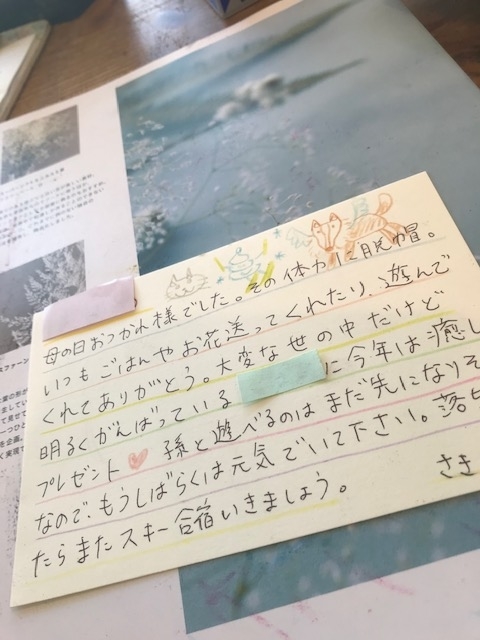 母の日おつかれ様でした。その体力に脱帽。
いつもごはんやお花送ってくれたり、遊んで
くれてありがとう。大変な世の中だけど
明るくがんばっている に今年は癒し
プレゼント♡ 孫と遊べるのはまだ先になりそ
なので、もうしばらくは元気でいて下さい。落ち
たらまたスキー合宿いきましょう。
さき